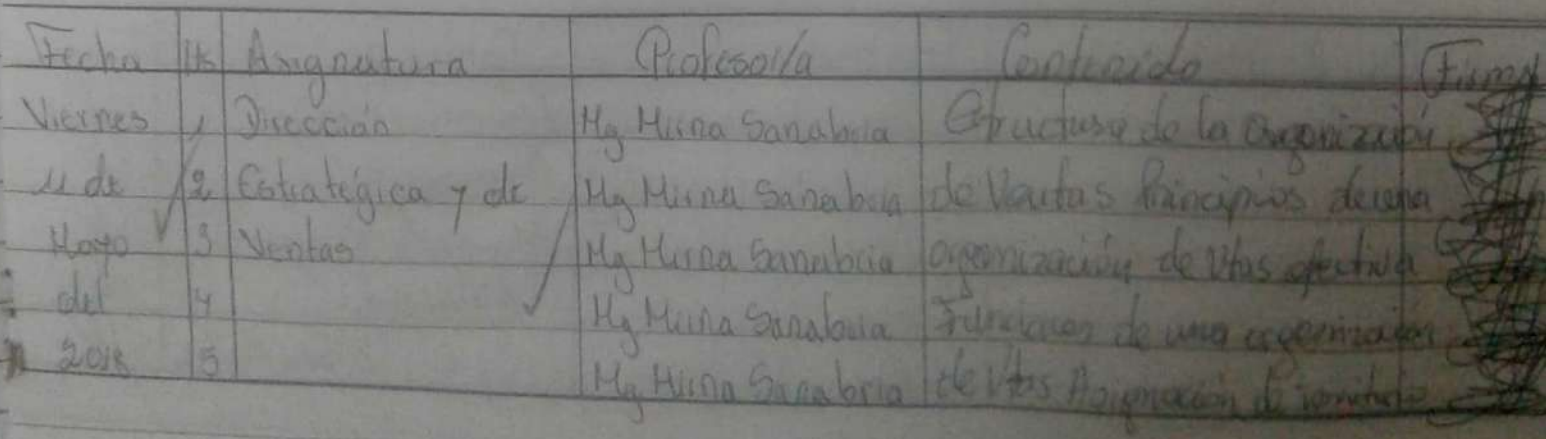 Fecha Asignatura Profesor/a Contenido Firma
Viernes 1 Dirección Mg Mirna Sanabria Estructura de la organización
11 de 2 Estratégica y de Mg Mirna Sanabria de Ventas Principios de una
Mayo 3 Ventas Mg Mirna Sanabria organización de Vtas efectiva
del 4 Mg Mirna Sanabria Funciones de una organización
2018 5 Mg Mirna Sanabria de Vtas Asignación de